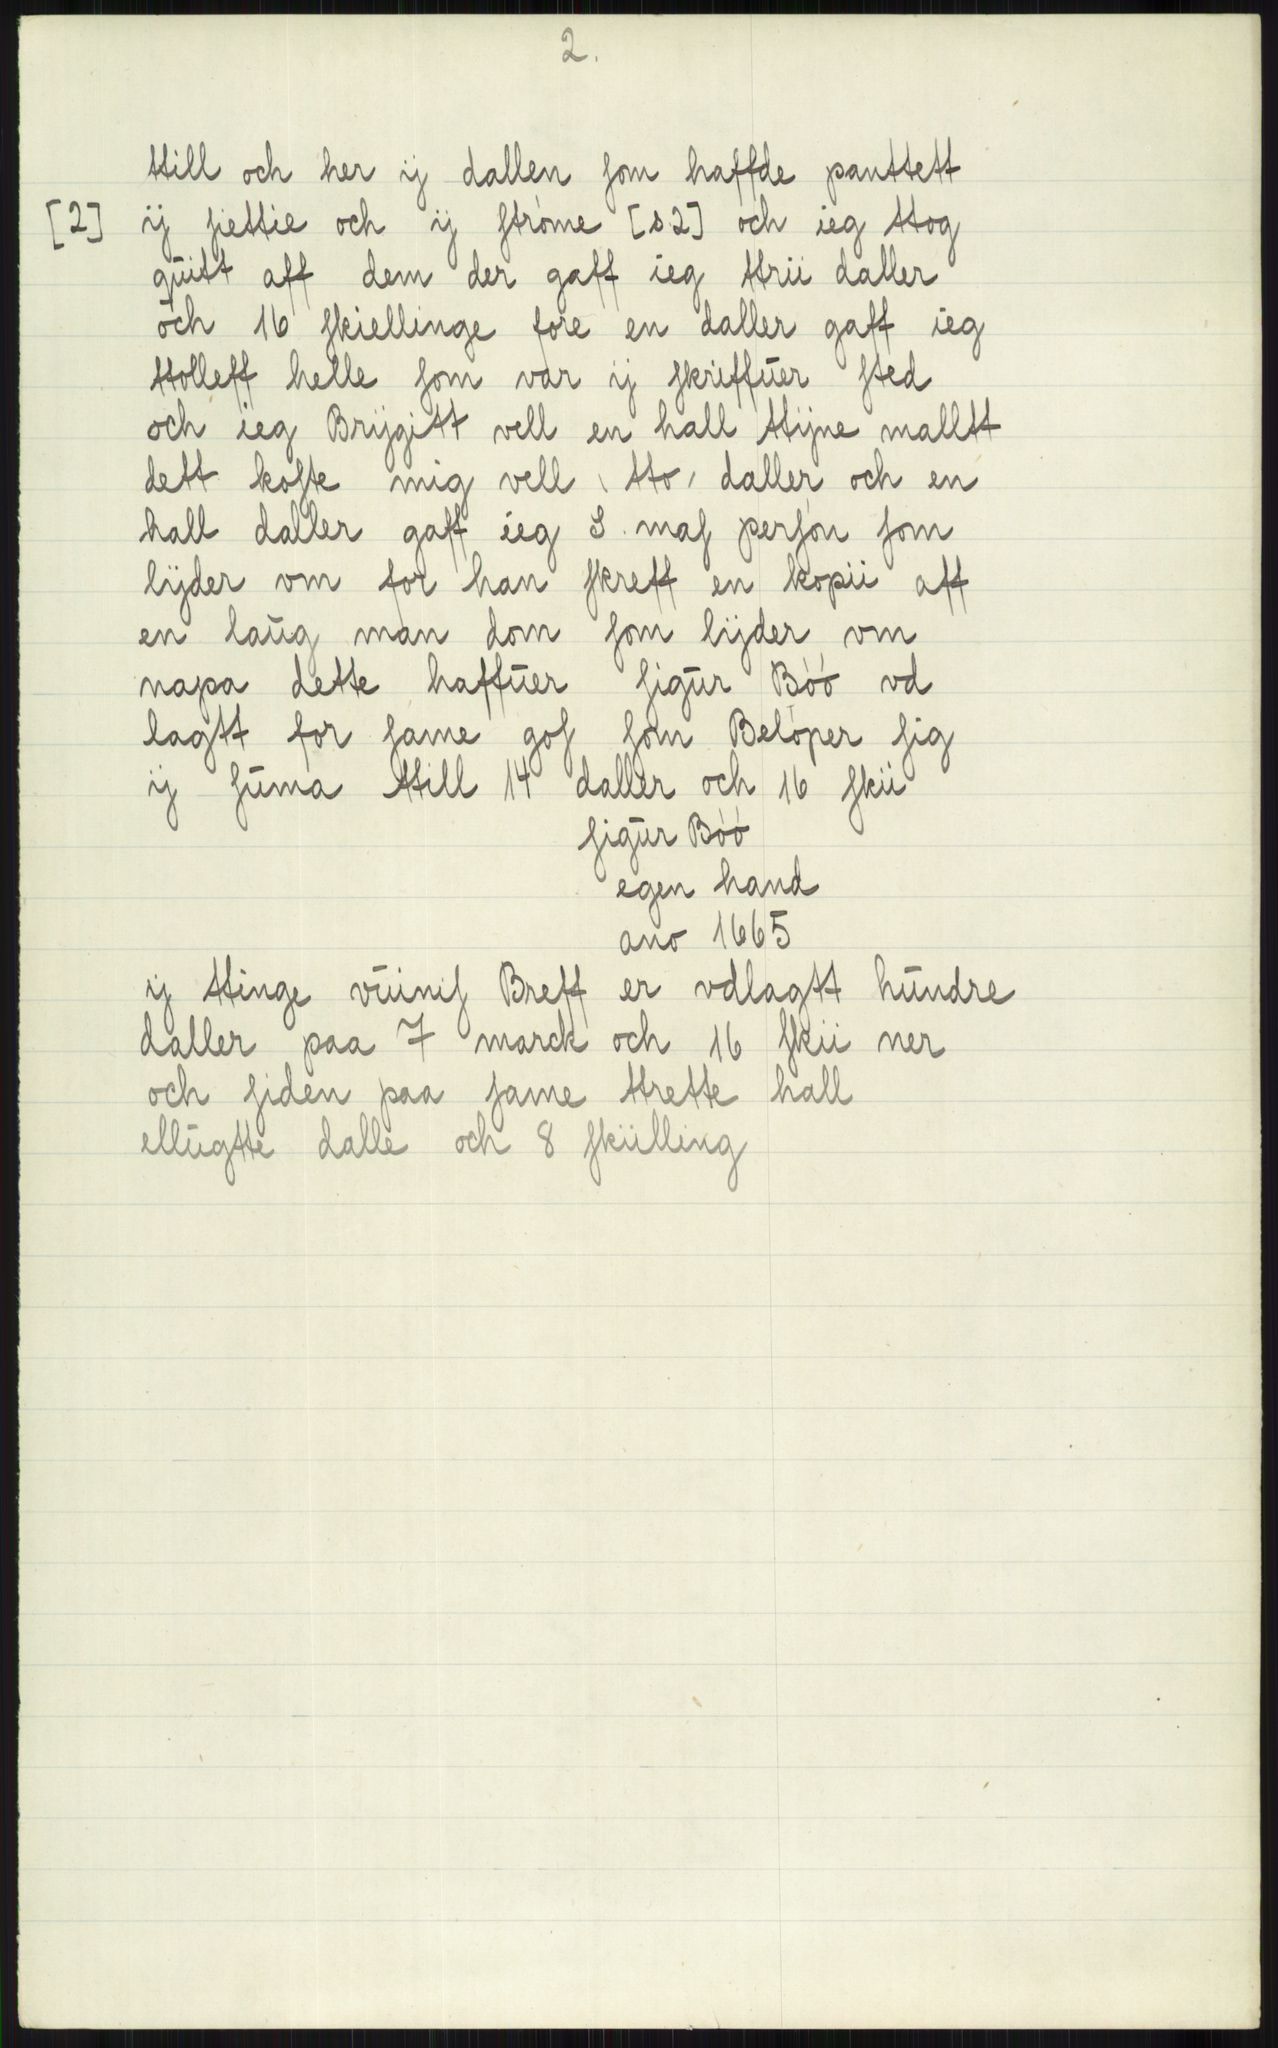 2.
ttill och her ij dallen som haffde panttett
[2] ij siettie och ij strøme [s2] och ieg ttog
quitt aff dem der gaff ieg ttrii daller
och 16 skiellinge fore en daller gaff ieg
ttolleff helle som var ij skriffuer sted
och ieg Brijgitt vell en hall ttijne malltt
dett koste mig vell tto daller och en
hall daller gaff ieg S mas person som
lijder om for han skreff en kopii aff
en laug man dom som lijder om
napa dette haffuer sigur Bóó vd
lagtt for same gos som Beløper sig
ij suma ttill 14 daller och 16 skii
sigur Bóó
egen hand
ano 1665
ij ttinge vuinis Breff er vdlagtt hundre
daller paa 7 marck och 16 skii ner
och siden paa same ttrette hall
ellugtte dalle och 8 skiilling